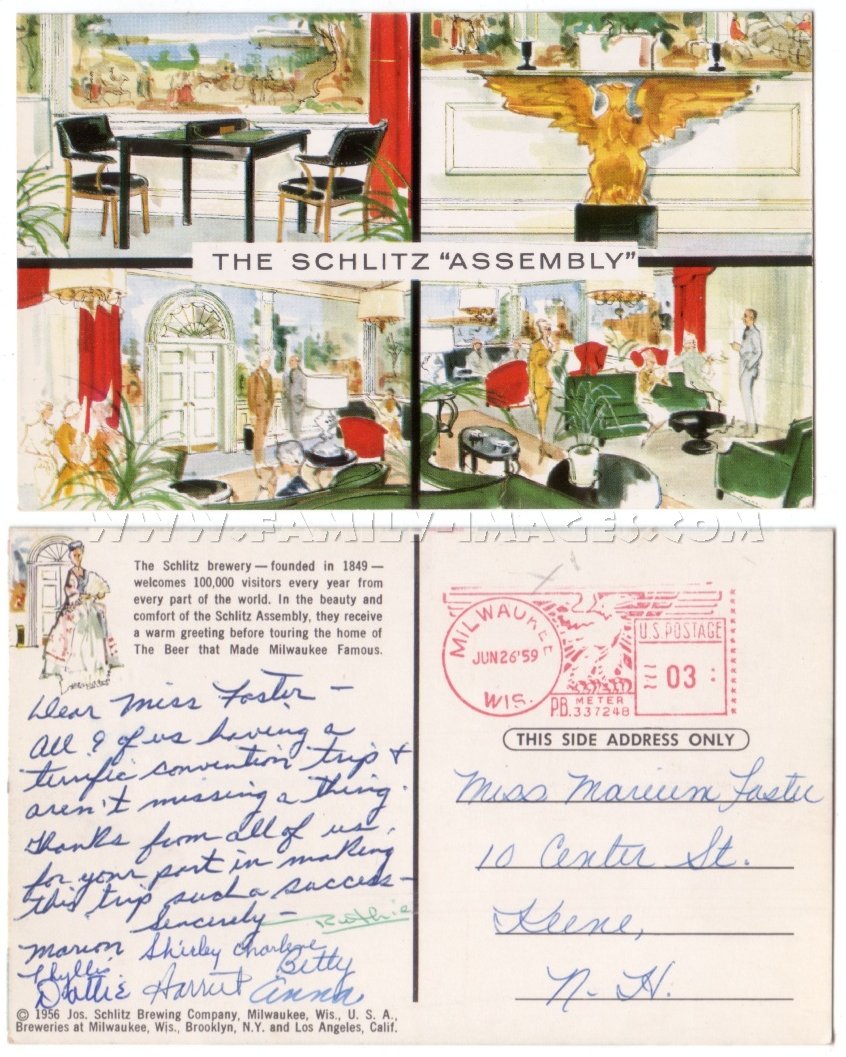 THE SCHLITZ "ASSEMBLY"
WWW.FAMILY-IMAGES.COM
The Schlitz brewery — founded in 1849 —
welcomes 100,000 visitors every year from
every part of the world. In the beauty and
comfort of the Schlitz Assembly, they receive
a warm greeting before touring the home of
The Beer that Made Milwaukee Famous.
Dear Miss Foster —
All 9 of us having a
terrific convention trip &
aren't missing a thing.
Thanks from all of us,
for your part in making
this trip such a success —
Sincerely — Ruthie
Marion Shirley Charlene
Phyllis Betty
Dottie Harriet Anna
© 1956 Jos. Schlitz Brewing Company, Milwaukee, Wis., U. S. A.,
Breweries at Milwaukee, Wis., Brooklyn, N.Y. and Los Angeles, Calif.
MILWAUKEE
JUN 26 '59
WIS.
PB. METER
337248
U.S. POSTAGE
03
THIS SIDE ADDRESS ONLY
Miss Marium Foster
10 Center St.
Keene,
N. H.